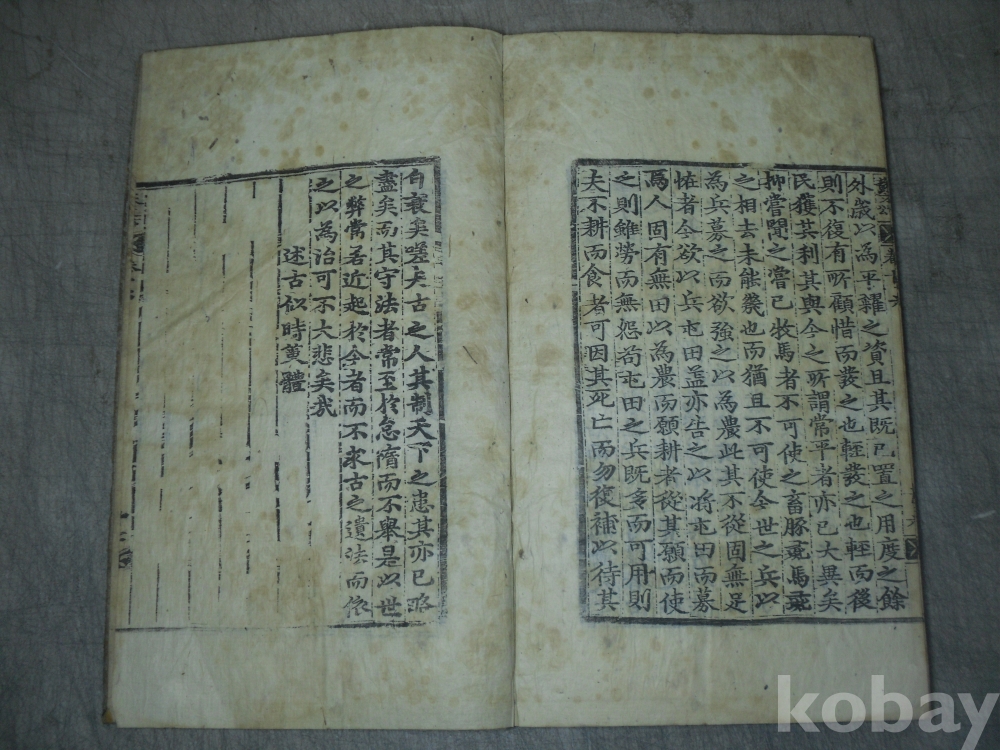 外歲以為平糶之資且其既已置之用度之餘
則不復有所顧惜而發之也輕發之也輕而後
民獲其利其與今之所謂常平者亦已大異矣
抑嘗聞之嘗已牧馬者不可使之畜豚彘馬彘
之相去未能幾也而猶且不可使今世之兵以
為兵募之而欲強之以為農此其不從固無足
恠者今欲以兵屯田盖亦告之以將屯田而募
焉人固有無田以為農而願耕者從其願而使
之則雖勞而無怨苟屯田之兵既多而可用則
夫不耕而食者可因其死亡而勿復補以待其
自衰矣嗟夫古之人其制天下之患其亦已略
盡矣而其守法者常至於怠惰而不舉是以世
之弊常若近起於今者而不求古之遺法而依
之以為治可不大悲矣哉
述古似時萸體
kobay